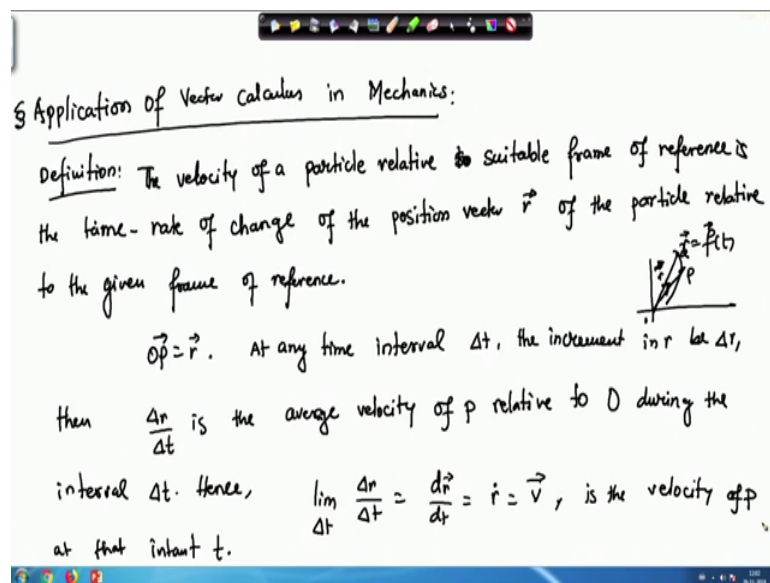 § Application of Vector Calculus in Mechanics:
Definition: The velocity of a particle relative to suitable frame of reference is
the time-rate of change of the position vector \vec{r} of the particle relative
to the given frame of reference.
\vec{r} = \vec{f}(t)
P
\vec{OP} = \vec{r}. At any time interval Δt, the increment in r be Δr,
then Δr/Δt is the average velocity of P relative to O during the
interval Δt. Hence, lim Δt Δr/Δt = d\vec{r}/dt = ṙ = \vec{v}, is the velocity of P
at that intant t.